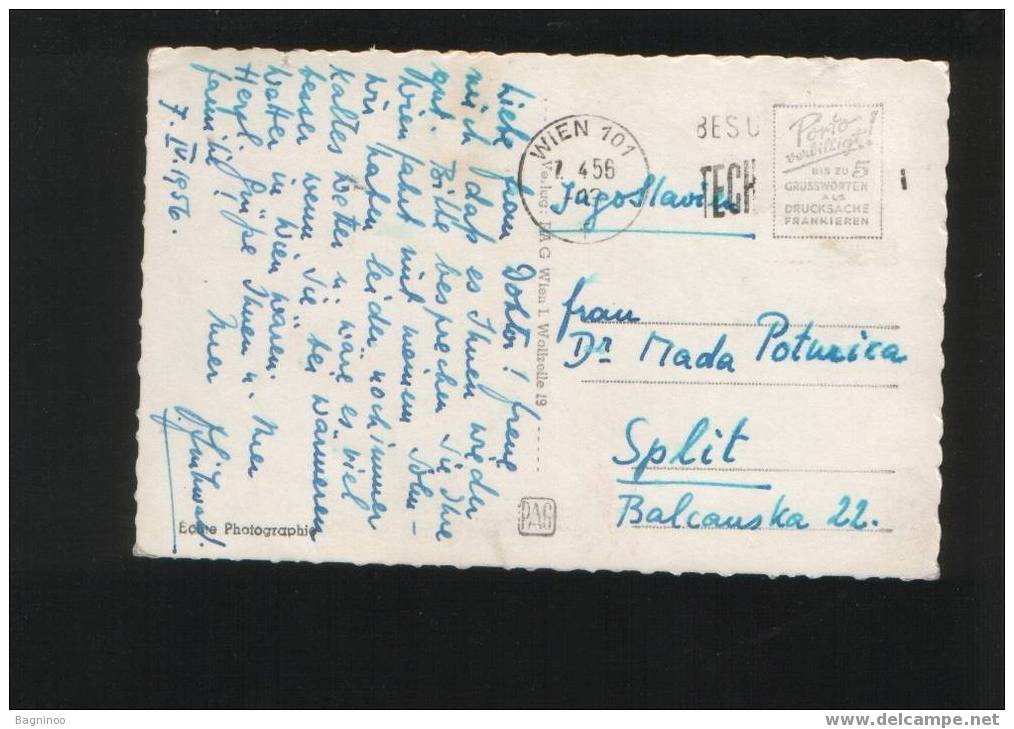 Liebe Frau Doktor! Freue
mich daß es Ihnen wieder
gut. Bitte besprechen Sie Ihre
Wien fahrt mit meinem Sohn -
Wir haben leider noch immer
kaltes Wetter u. wäre es viel
besser wenn Sie bei wärmeren
Wetter in Wien wären.
Herzl. Grüße Ihnen u. Ihrer
Familie Ihrer
7. IV. 1956.
Echte Photographie
Verlag: PAG Wien I. Wollzeile 19
PAG
WIEN 101
7. 4 56
BESU
TECH
Porto
verbilligt!
BIS ZU 5
GRUSSWORTEN
ALS
DRUCKSACHE
FRANKIEREN
Jugoslavien
Frau
Dr Mada Poturica
Split
Balcanska 22.
Bagninoo
www.delcampe.net